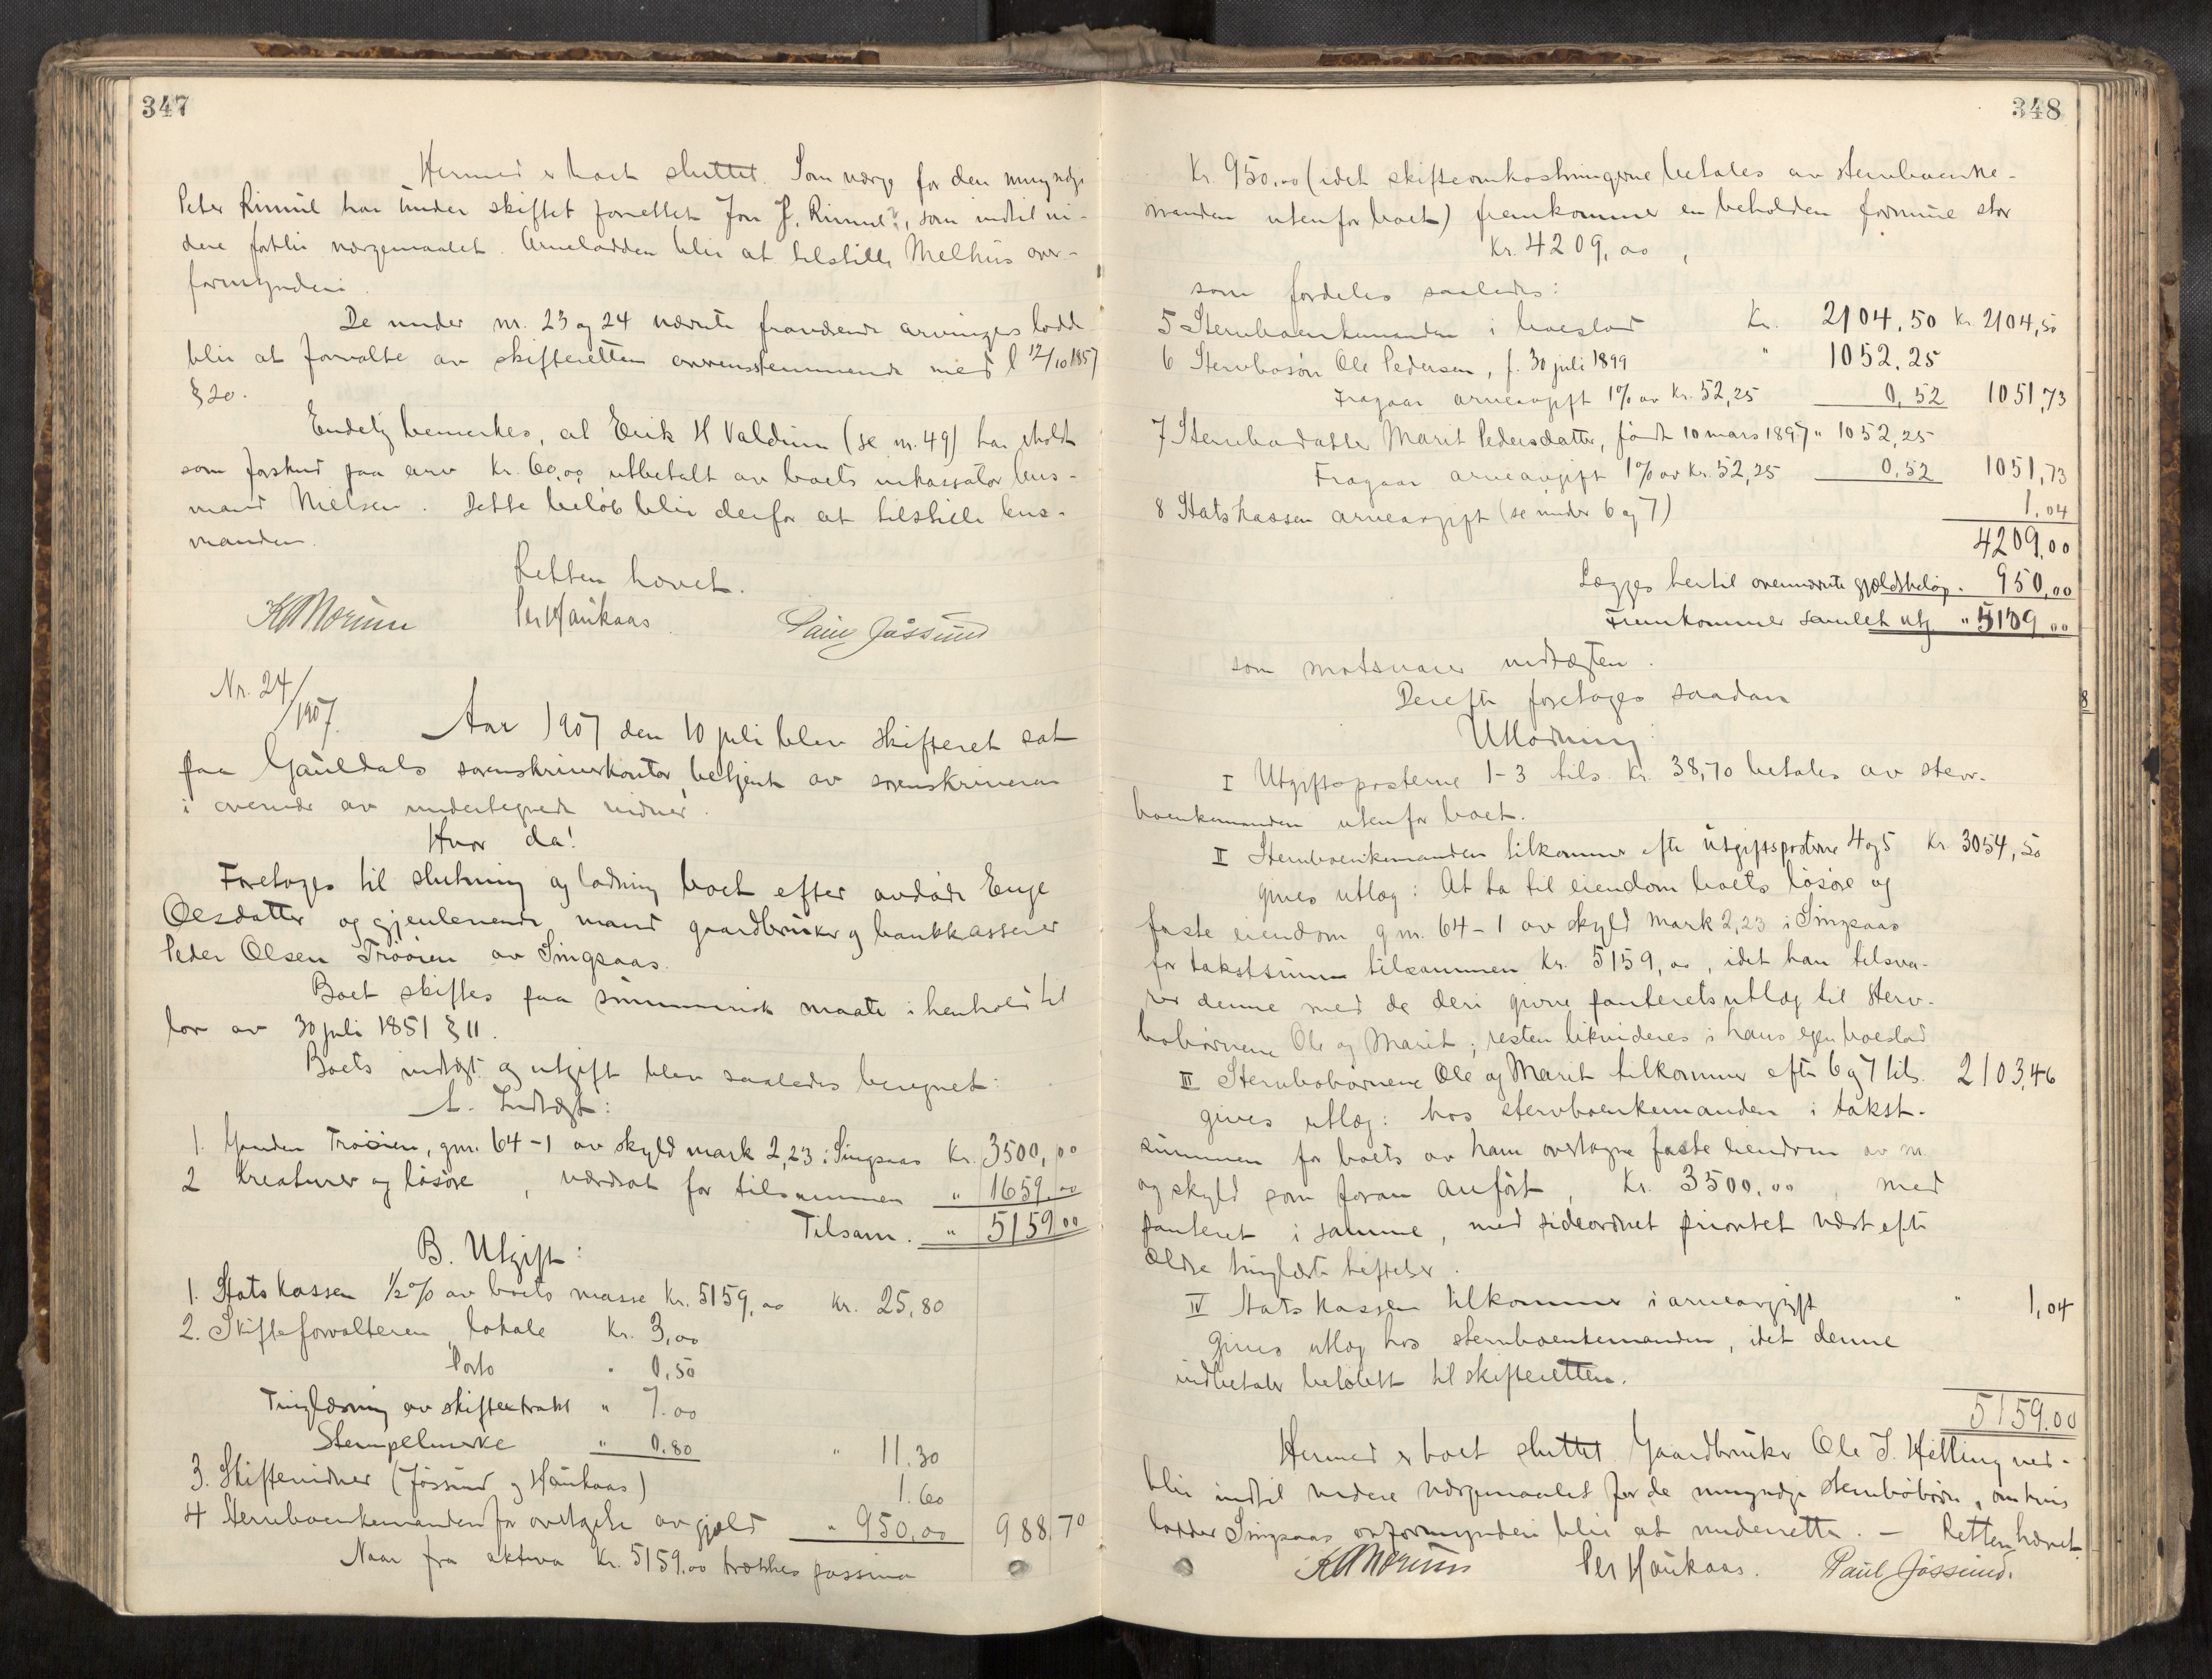 347
Hermed er boet sluttet. Som værge for den umyndige
Peter Rimul har under skiftet forrettet Jon J. Rimul, som indtil vi-
dere forblir værgemaalet. Arveladden blir at tilstille Melhus over-
formynderi.
De under nr. 23 og 24 nævnte fraværende arvingers lodd
blir at forvalte av skifteretten overensstemmende med l 12/10 1857
§ 20.
Endelig bemerkes, at Erik H Valdum (se nr. 49) har erholdt
som forskud paa arv kr. 60,00 utbetalt av boets inkassator lens-
mand Nielsen. Dette beløb blir derfor at tilstille lens-
manden.
Retten hævet.
Per Haukaas Paul Jøssund
Nr. 24/1907.
Aar 1907 den 10 juli blev skifteret sat
paa Gauldals sorenskriverkontor, betjent av sorenskriveren
i overvær av undertegnede vidner.
Hvor da!
Foretoges til slutning og lodning boet efter avdøde
Olesdatter og gjenlevende mand gaardbruker og bankkasserer
Peder Olsen Trøøien av Singsaas.
Boet skiftes paa summarisk maate i henhold til
lov av 30 juli 1851 § 11.
Boets indtægt og utgift blev saaledes beregnet:
A. Indtægt:
1. Gaarden Trøøien, gnr. 64-1 av skyld mark 2,23 i Singsaas Kr. 3500,00
2 Kreaturer og løsøre, værdsat for tilsammen " 1659,00
Tilsam. " 5159 00
B. Utgift:
1. Statskassen ½ % av boets masse kr. 5159,00 kr. 25,80
2. Skifteforvalteren, lokale kr. 3,00
Porto " 0,50
Tinglæsning av skifteextrakt " 7.00
Stempelmerke " 0.80 " 11.30
3. Skiftevidner (Jøssund og Haukaas) 1.60
4 Stervboenkemanden for overtagelse av gjæld " 950,00 988,70
Naar fra aktiva kr. 5159.00 trækkes passiva
348
Kr. 950,00 (idet skifteomkostningerne betales av stervboenke-
manden utenfor boet) fremkommer en beholden formue stor
kr. 4209,00,
som fordeles saaledes:
5 Stervboenkemanden i boeslod Kr. 2104.50 Kr. 2104,50
6 Stervbosøn Ole Pedersen, f. 30 juli 1899 " 1052.25
Fragaar arveavgift 1% av kr. 52,25 0,52 1051,73
7 Stervbodatter Marit Pedersdatter, født 10 mars 1897 " 1052,25
Fragaar arveavgift 1% av kr. 52,25 0,52 1051,73
8 Statskassen arveavgift (se under 6 og 7) 1.04
4209,00
Lægges hertil ovennævnte gjældsbeløp. 950,00
Fremkommer samlet utg " 5159 00
som motsvarer indtægten.
Derefter foretoges saadan
Utlodning:
I Utgiftsposterne 1-3 tils. kr. 38,70 betales av sterv-
boenkemanden utenfor boet.
II Stervboenkemanden tilkommer efter utgiftsposterne 4 og 5 Kr. 3054,50
gives utlæg: At ta til eiendom boets løsøre og
faste eiendom gnr. 64-1 av skyld mark 2,23 i Singsaas
for takstsum tilsammen kr. 5159,00, idet han tilsva-
rer denne med de deri givne panteretsutlæg til sterv-
bobørnene Ole og Marit; resten likvideres i hans egen boeslod
III Stervbobørnene Ole og Marit tilkommer efter 6 og 7 tils. 2103,46
gives utlæg: hos stervboenkemanden i takst-
summen for boets av ham overtagne faste eiendom av nr.
og skyld som foran anført, kr. 3500.00, med
panteret i samme, med sideordnet prioritet næst efter
ældre tinglæste heftelser.
IV Statskassen tilkommer i arveavgift " 1,04
Gives utlæg hos stervboenkemanden, idet denne
indbetaler beløbet til skifteretten.
5159.00
Hermed er boet sluttet. Gaardbruker Ole J. Hilling ved-
blir indtil videre værgemaalet for de umyndige stervbobørn, om hvis
lodder Singsaas overformynderi blir at underrette. - Retten hævet.
Per Haukaas. Paul Jøssund.
8